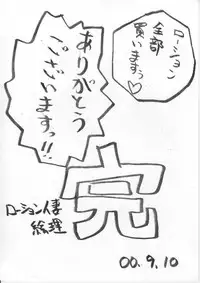 ローション
全部
買いますぅ♡
ありがとう
ございますっ!!
完
ローション人妻
絵理
00.9.10